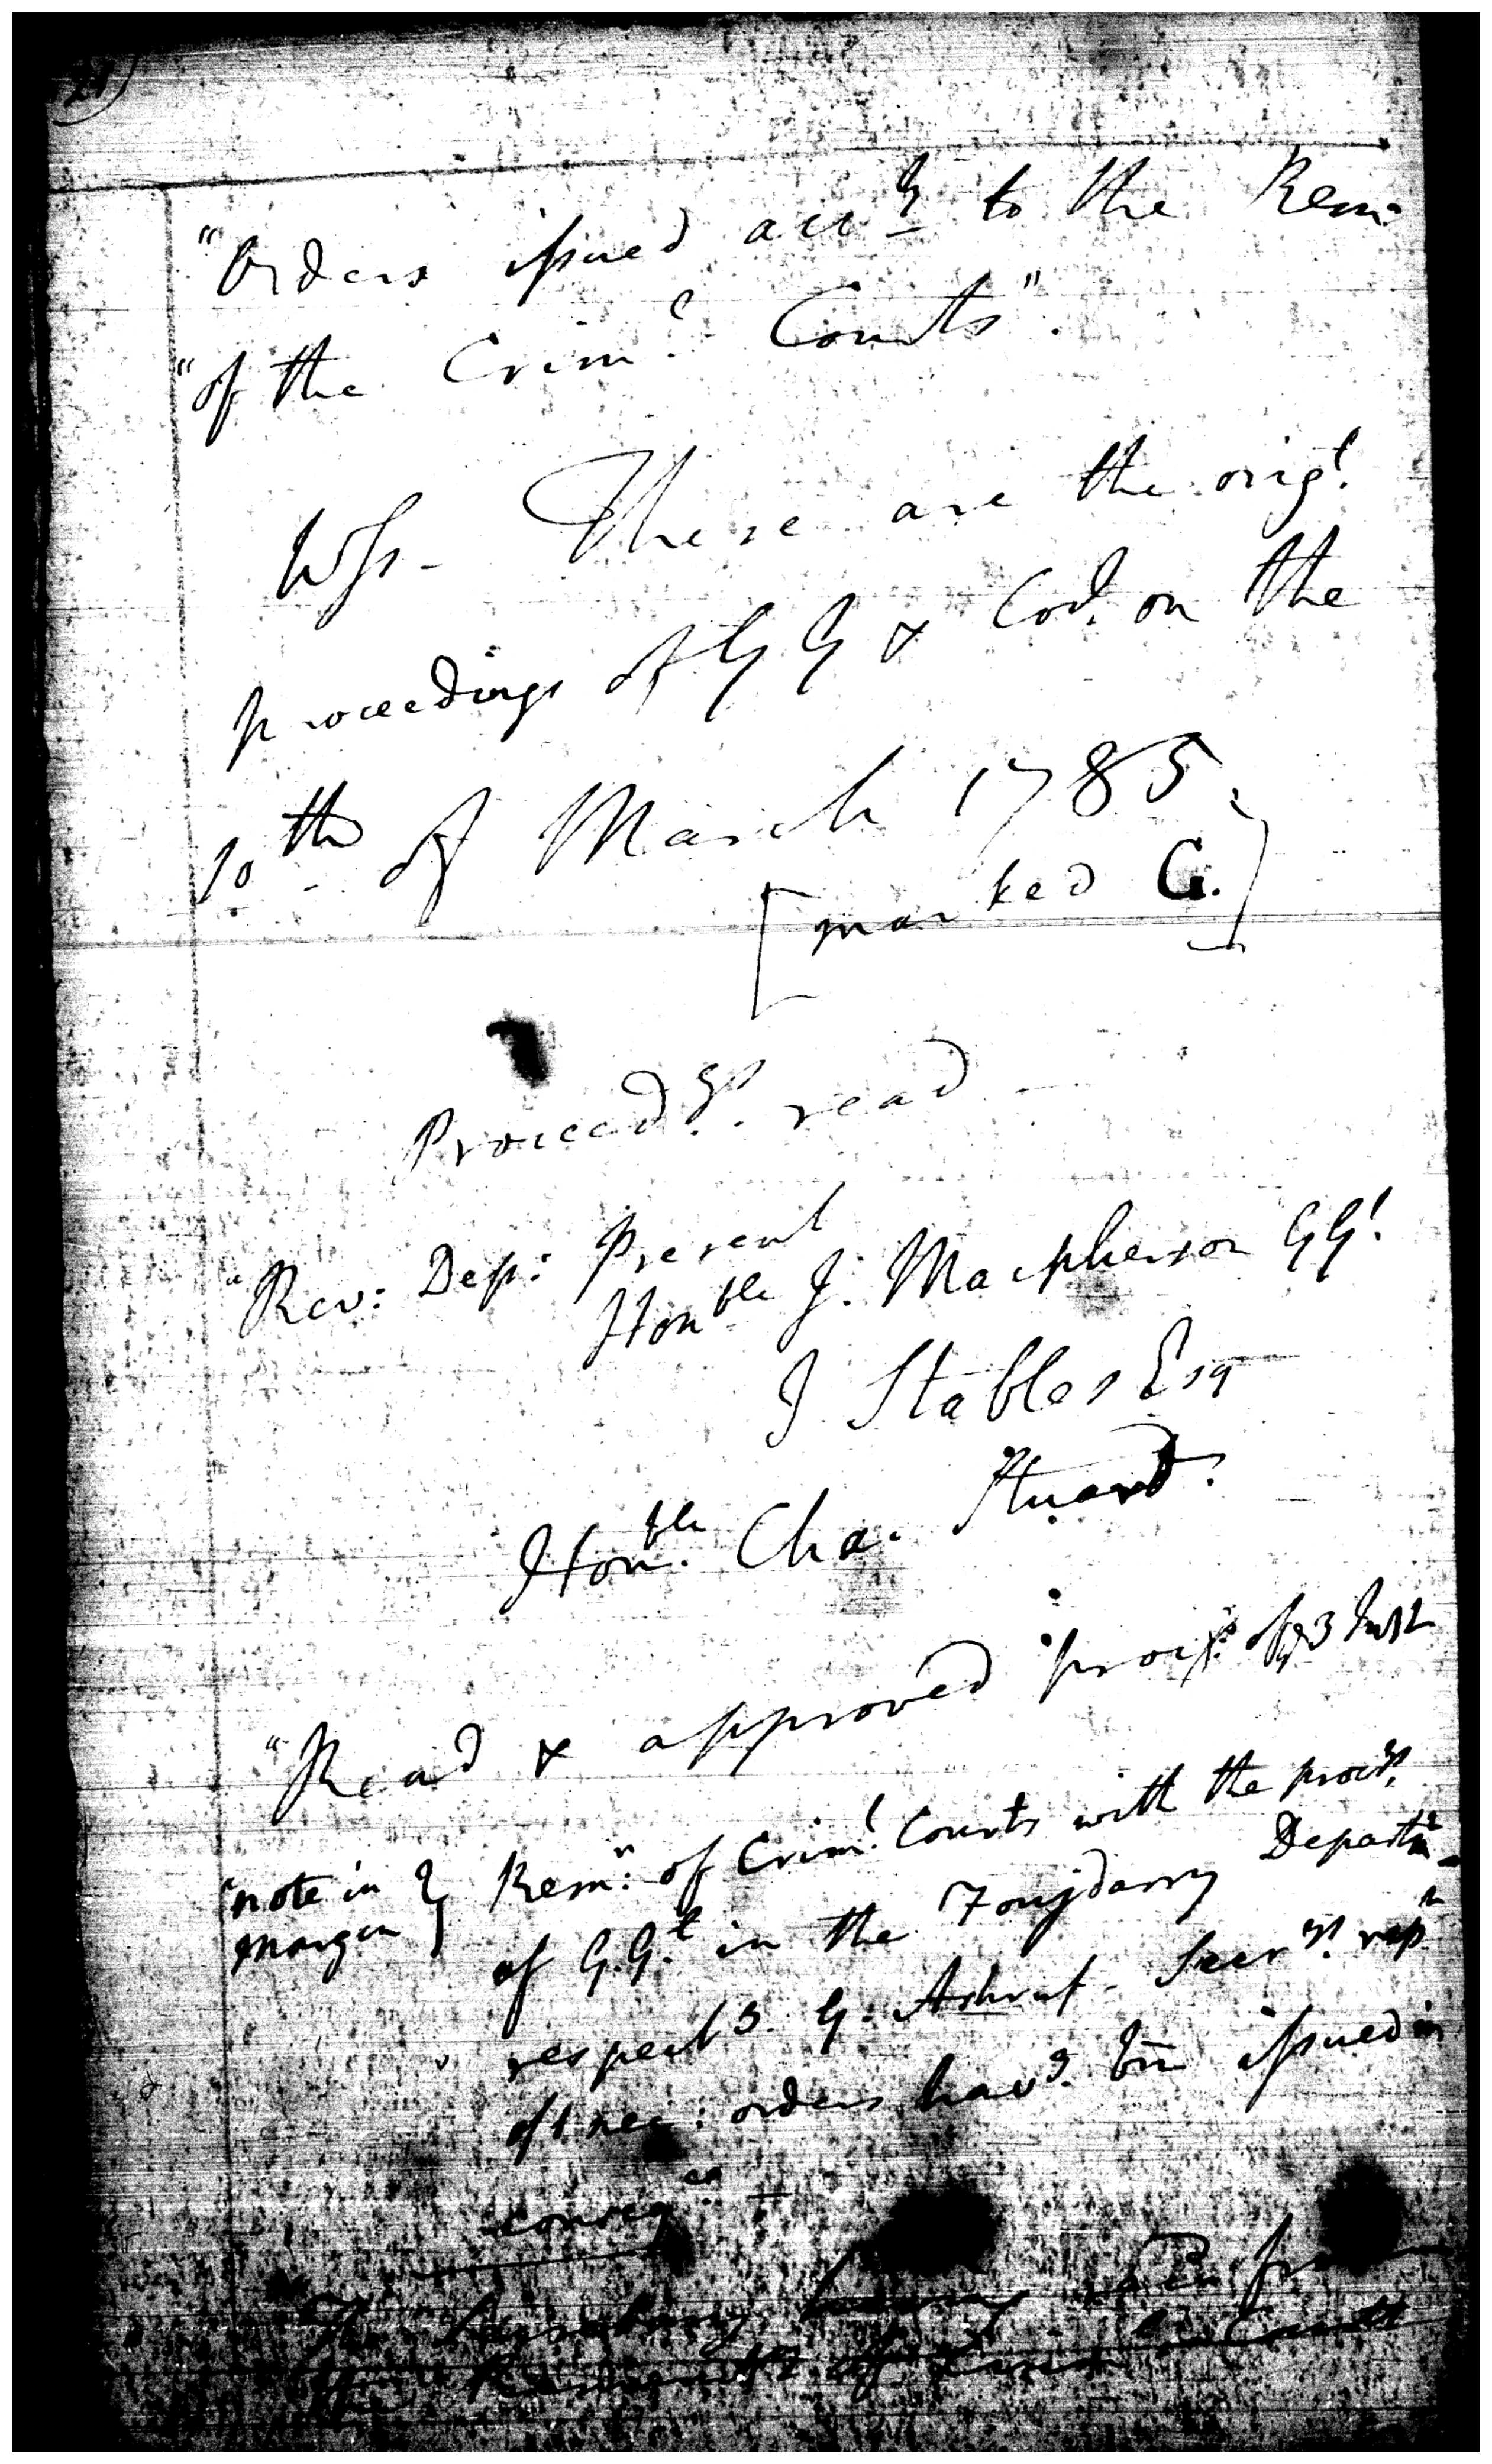 "Orders issued accg to the Rem:
"of the Crim.l Courts".
Wss - These are the orig.l
proceedings of G G & Co.l on the
10th of March 1785.
[marked G.]
Proceed.gs read -
"Rev: Dep: Present
Honble J. Macpherson GG.l
J Stables Esq
Honble Cha. Stuart.
"Read & approved procgs of 3 Inst
"note in margin } Remr: of Crim.l Courts with the procgs.
of G.G.l in the Foujdarry Departmt
respectg. G. Ashruf - Secry.
of t nec: orders havg. bn issued in
conseqce. -
The